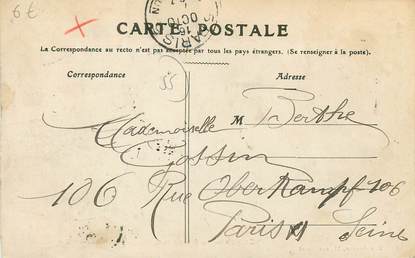 6€
CARTE POSTALE
La Correspondance au recto n'est pas acceptée par tous les pays étrangers. (Se renseigner à la poste).
Correspondance
Adresse
55
Mademoiselle M Berthe
Cossin
106 Rue Oberkampf 106
Paris XI Seine